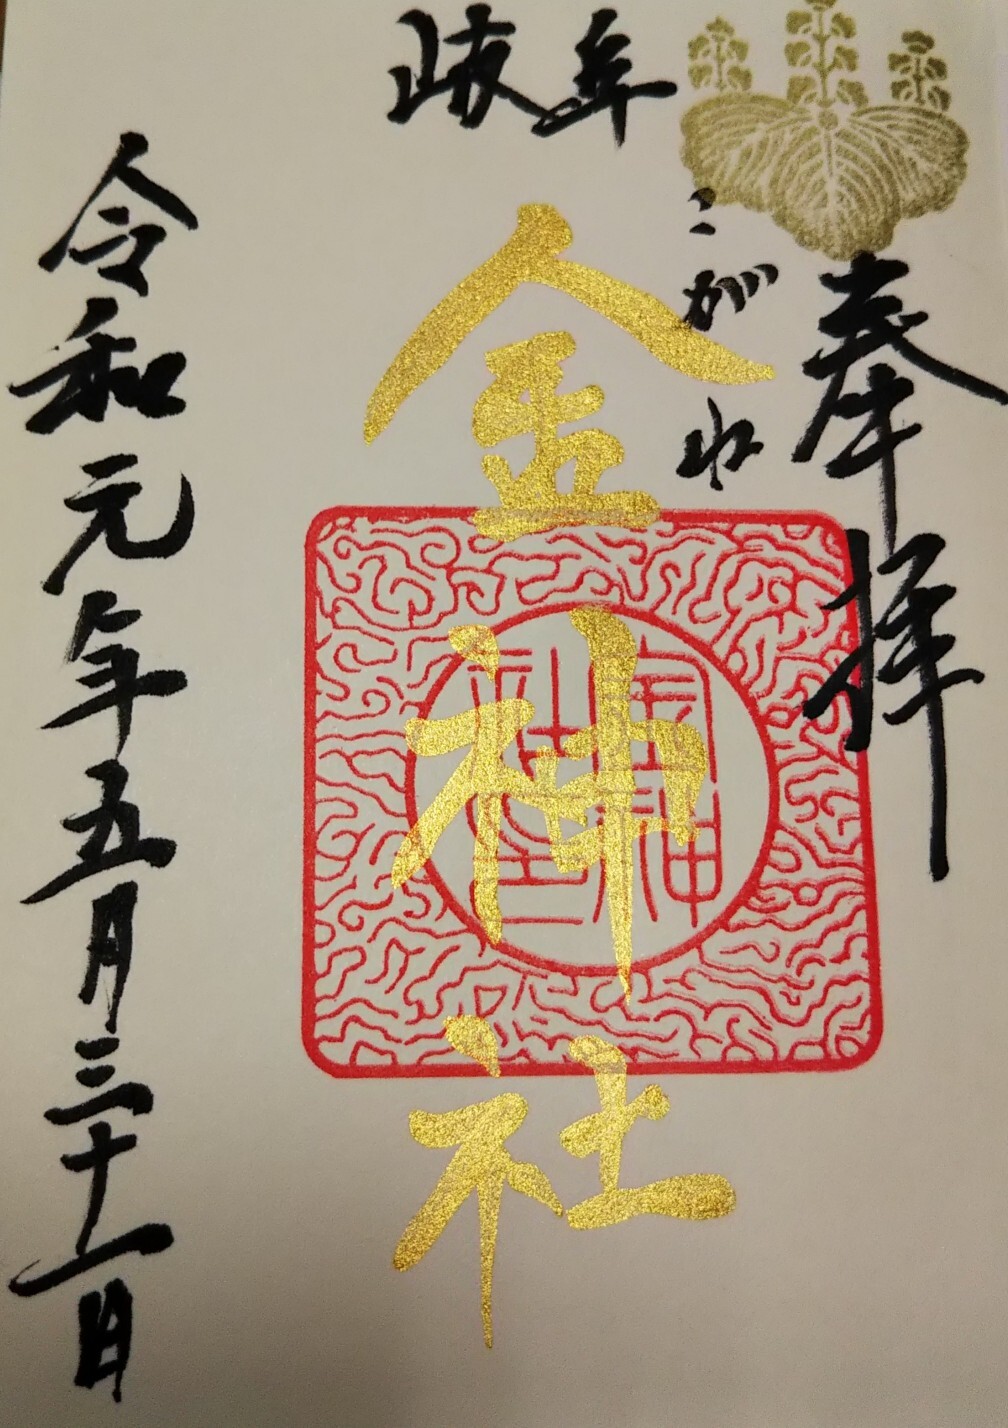 奉拝
岐阜
こがね
金神社
令和元年五月三十一日